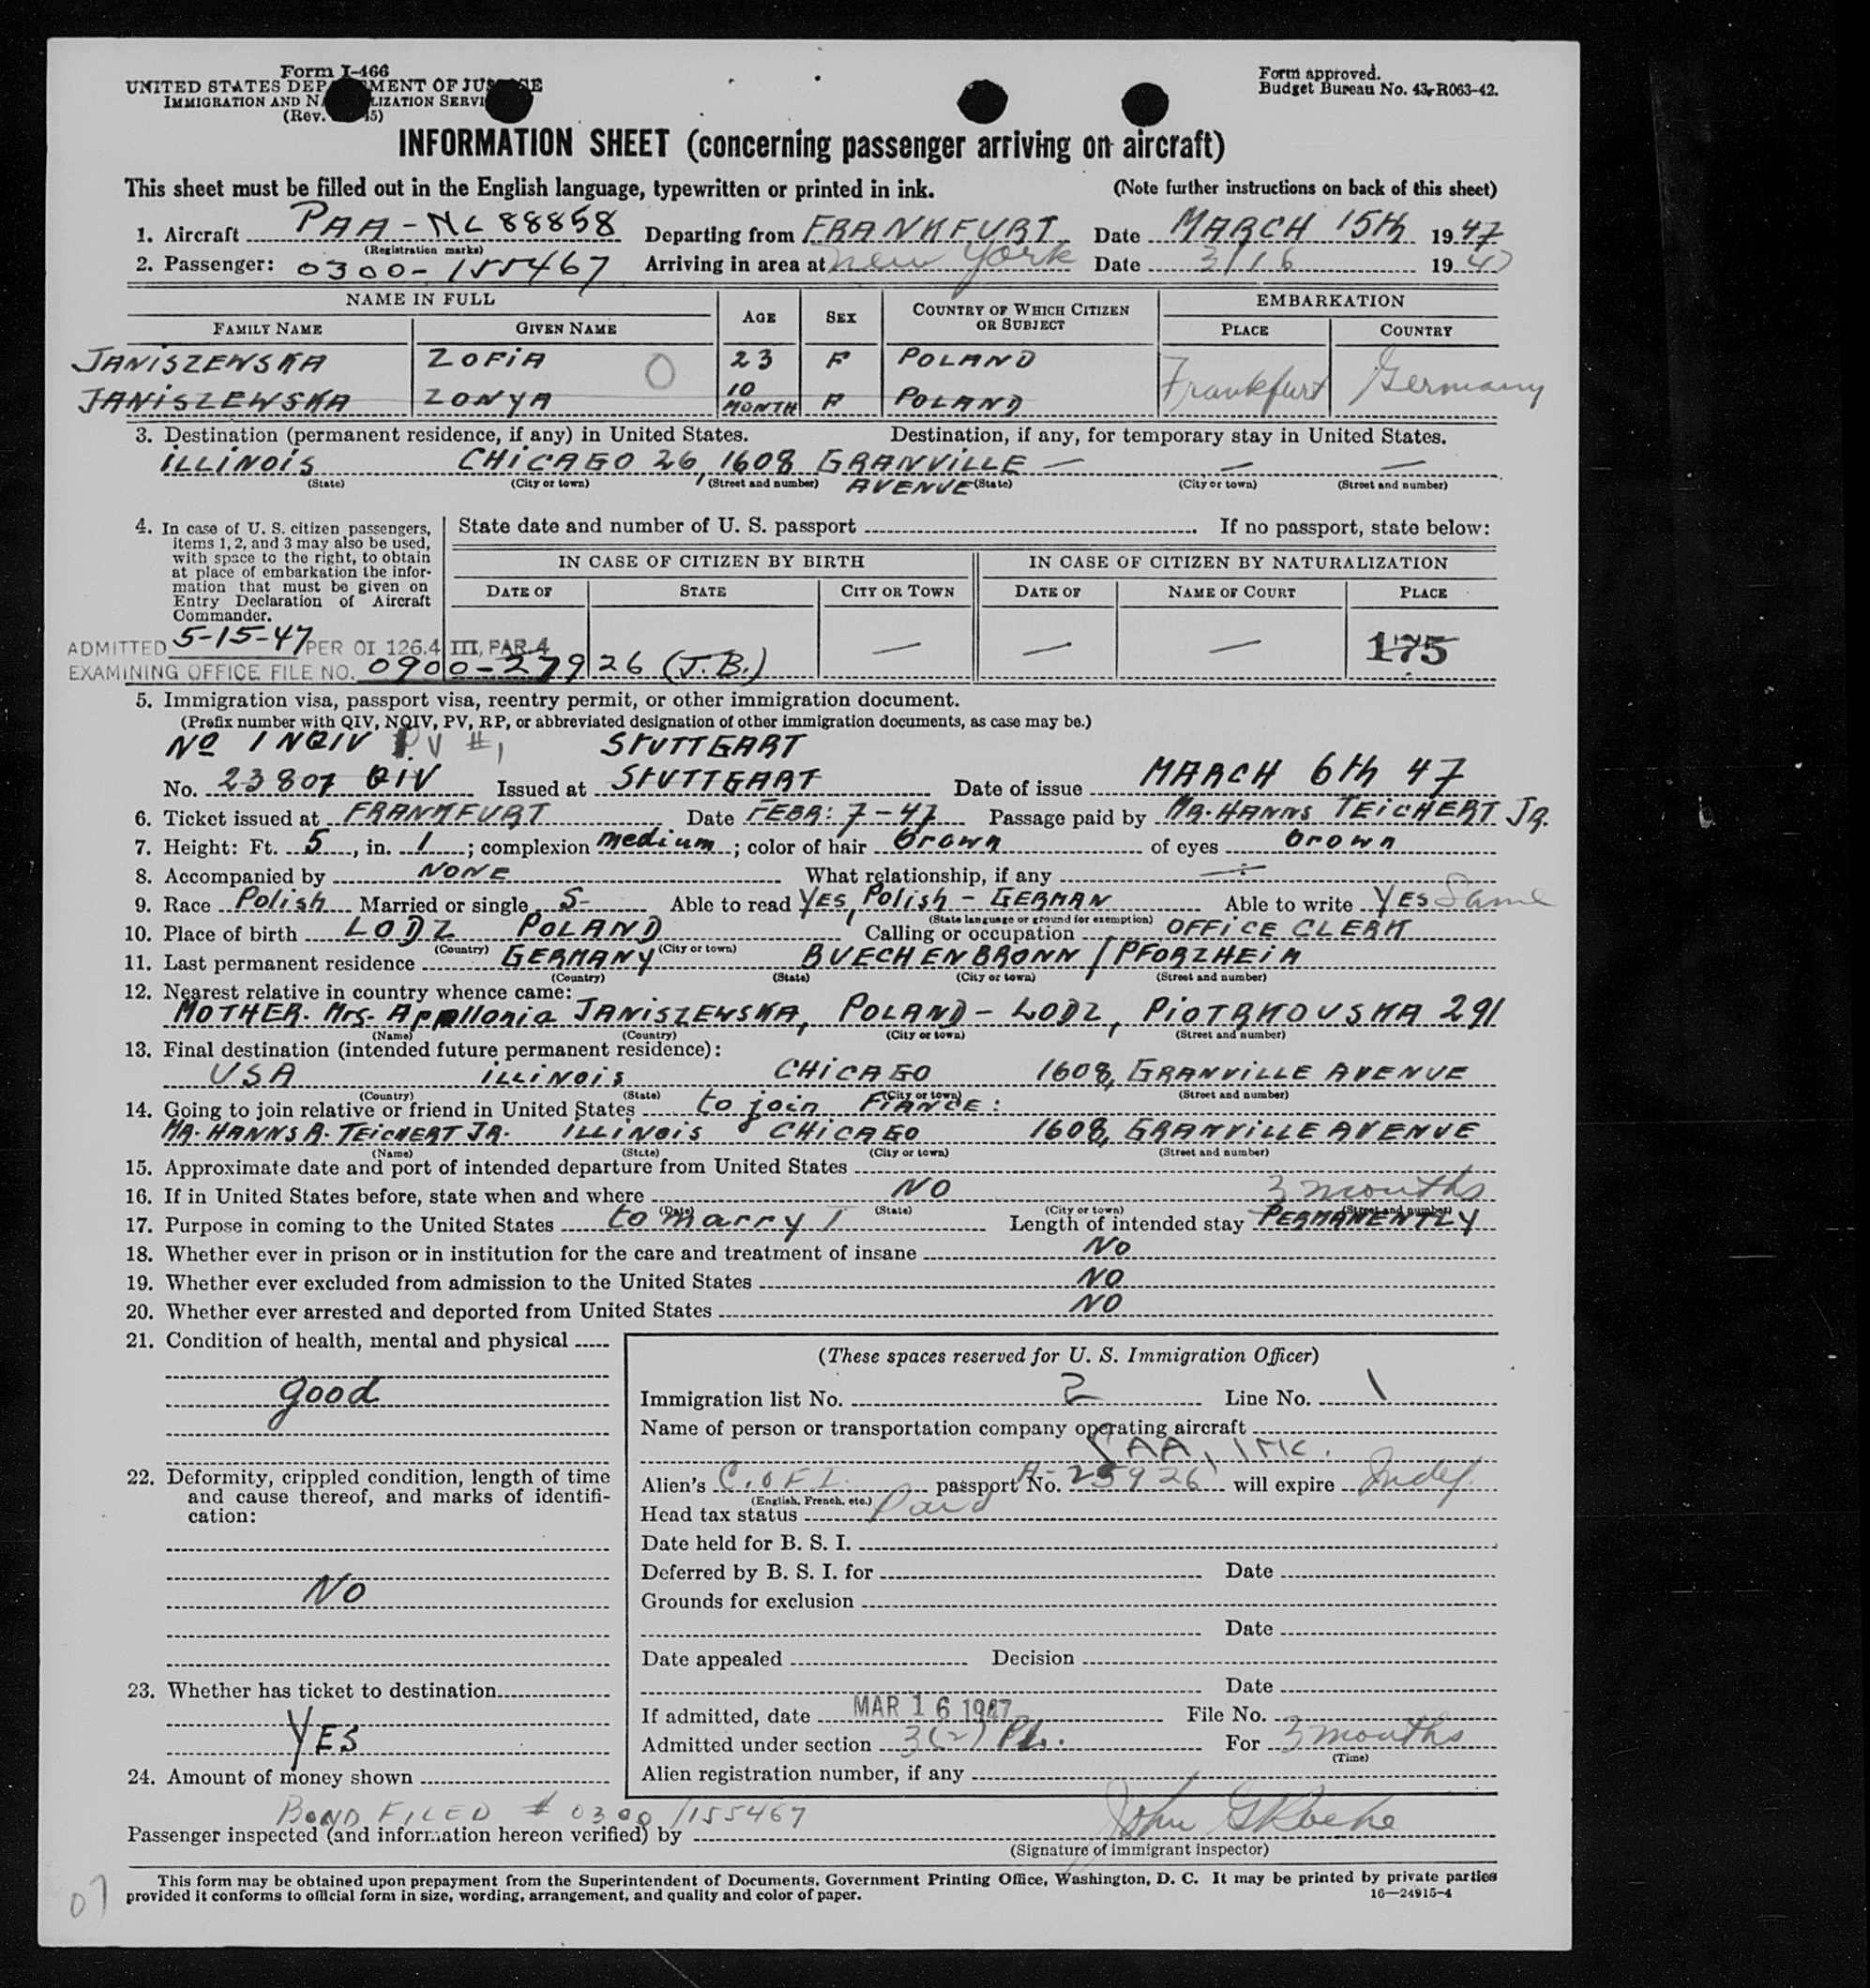 Form I-466
UNITED STATES DEP MENT OF JUS E
IMMIGRATION AND NA LIZATION SERVI
(Rev. 45)
Form approved.
Budget Bureau No. 43-R063-42.
INFORMATION SHEET (concerning passenger arriving on aircraft)
This sheet must be filled out in the English language, typewritten or printed in ink. (Note further instructions on back of this sheet)
1. Aircraft PAA-NC 88858 Departing from FRANKFURT Date MARCH 15th 1947
(Registration marks)
2. Passenger: 0300-155467 Arriving in area at New York Date 3/16 1947
NAME IN FULL AGE SEX COUNTRY OF WHICH CITIZEN OR SUBJECT EMBARKATION
FAMILY NAME GIVEN NAME PLACE COUNTRY
JANISZEWSKA ZOFIA 0 23 F POLAND
JANISZEWSKA ZONYA 10 MONTH F POLAND Frankfurt Germany
3. Destination (permanent residence, if any) in United States. Destination, if any, for temporary stay in United States.
ILLINOIS CHICAGO 26, 1608 GRANVILLE — — —
(State) (City or town) (Street and number) AVENUE (State) (City or town) (Street and number)
4. In case of U. S. citizen passengers, items 1, 2, and 3 may also be used, with space to the right, to obtain at place of embarkation the information that must be given on Entry Declaration of Aircraft Commander.
State date and number of U. S. passport . If no passport, state below:
IN CASE OF CITIZEN BY BIRTH IN CASE OF CITIZEN BY NATURALIZATION
DATE OF STATE CITY OR TOWN DATE OF NAME OF COURT PLACE
— — — 175
ADMITTED 5-15-47 PER OI 126.4 III, PAR. 4
EXAMINING OFFICE FILE NO. 0900-27926 (J.B.)
5. Immigration visa, passport visa, reentry permit, or other immigration document.
(Prefix number with QIV, NQIV, PV, RP, or abbreviated designation of other immigration documents, as case may be.)
No 1 NQIV PV #1 STUTTGART
No. 23807 QIV Issued at STUTTGART Date of issue MARCH 6th 47
6. Ticket issued at FRANKFURT Date FEBR: 7-47 Passage paid by MR. HANNS TEICHERT JR.
7. Height: Ft. 5, in. 1; complexion medium; color of hair brown of eyes brown
8. Accompanied by NONE What relationship, if any —
9. Race Polish Married or single S- Able to read YES, Polish - GERMAN Able to write YES Same
(State language or ground for exemption)
10. Place of birth LODZ POLAND Calling or occupation OFFICE CLERK
(Country) (City or town)
11. Last permanent residence GERMANY BUECHENBRONN / PFORZHEIM
(Country) (State) (City or town) (Street and number)
12. Nearest relative in country whence came:
MOTHER. Mrs. Appllonia JANISZEWSKA, POLAND - LODZ, PIOTRKOVSKA 291
(Name) (Country) (City or town) (Street and number)
13. Final destination (intended future permanent residence):
USA ILLINOIS CHICAGO 1608, GRANVILLE AVENUE
(Country) (State) (City or town) (Street and number)
14. Going to join relative or friend in United States to join FIANCE:
MR. HANNS R. TEICHERT JR. ILLINOIS CHICAGO 1608, GRANVILLE AVENUE
(Name) (State) (City or town) (Street and number)
15. Approximate date and port of intended departure from United States
16. If in United States before, state when and where NO 3 months
(Date) (State) (City or town) (Street and number)
17. Purpose in coming to the United States to marry Length of intended stay PERMANENTLY
18. Whether ever in prison or in institution for the care and treatment of insane NO
19. Whether ever excluded from admission to the United States NO
20. Whether ever arrested and deported from United States NO
21. Condition of health, mental and physical
good
22. Deformity, crippled condition, length of time and cause thereof, and marks of identification:
NO
23. Whether has ticket to destination
YES
24. Amount of money shown
(These spaces reserved for U. S. Immigration Officer)
Immigration list No. 2 Line No. 1
Name of person or transportation company operating aircraft
PAA, INC.
Alien's C. OF I. passport No. A-25926 will expire Indef.
(English, French, etc.)
Head tax status Paid
Date held for B. S. I.
Deferred by B. S. I. for Date
Grounds for exclusion
Date
Date appealed Decision
Date
If admitted, date MAR 16 1947 File No.
Admitted under section 3(2) PL. For 3 months
(Time)
Alien registration number, if any
BOND FILED # 0300/155467
Passenger inspected (and information hereon verified) by John G Roche
(Signature of immigrant inspector)
This form may be obtained upon prepayment from the Superintendent of Documents, Government Printing Office, Washington, D. C. It may be printed by private parties
provided it conforms to official form in size, wording, arrangement, and quality and color of paper. 16—24915-4
07